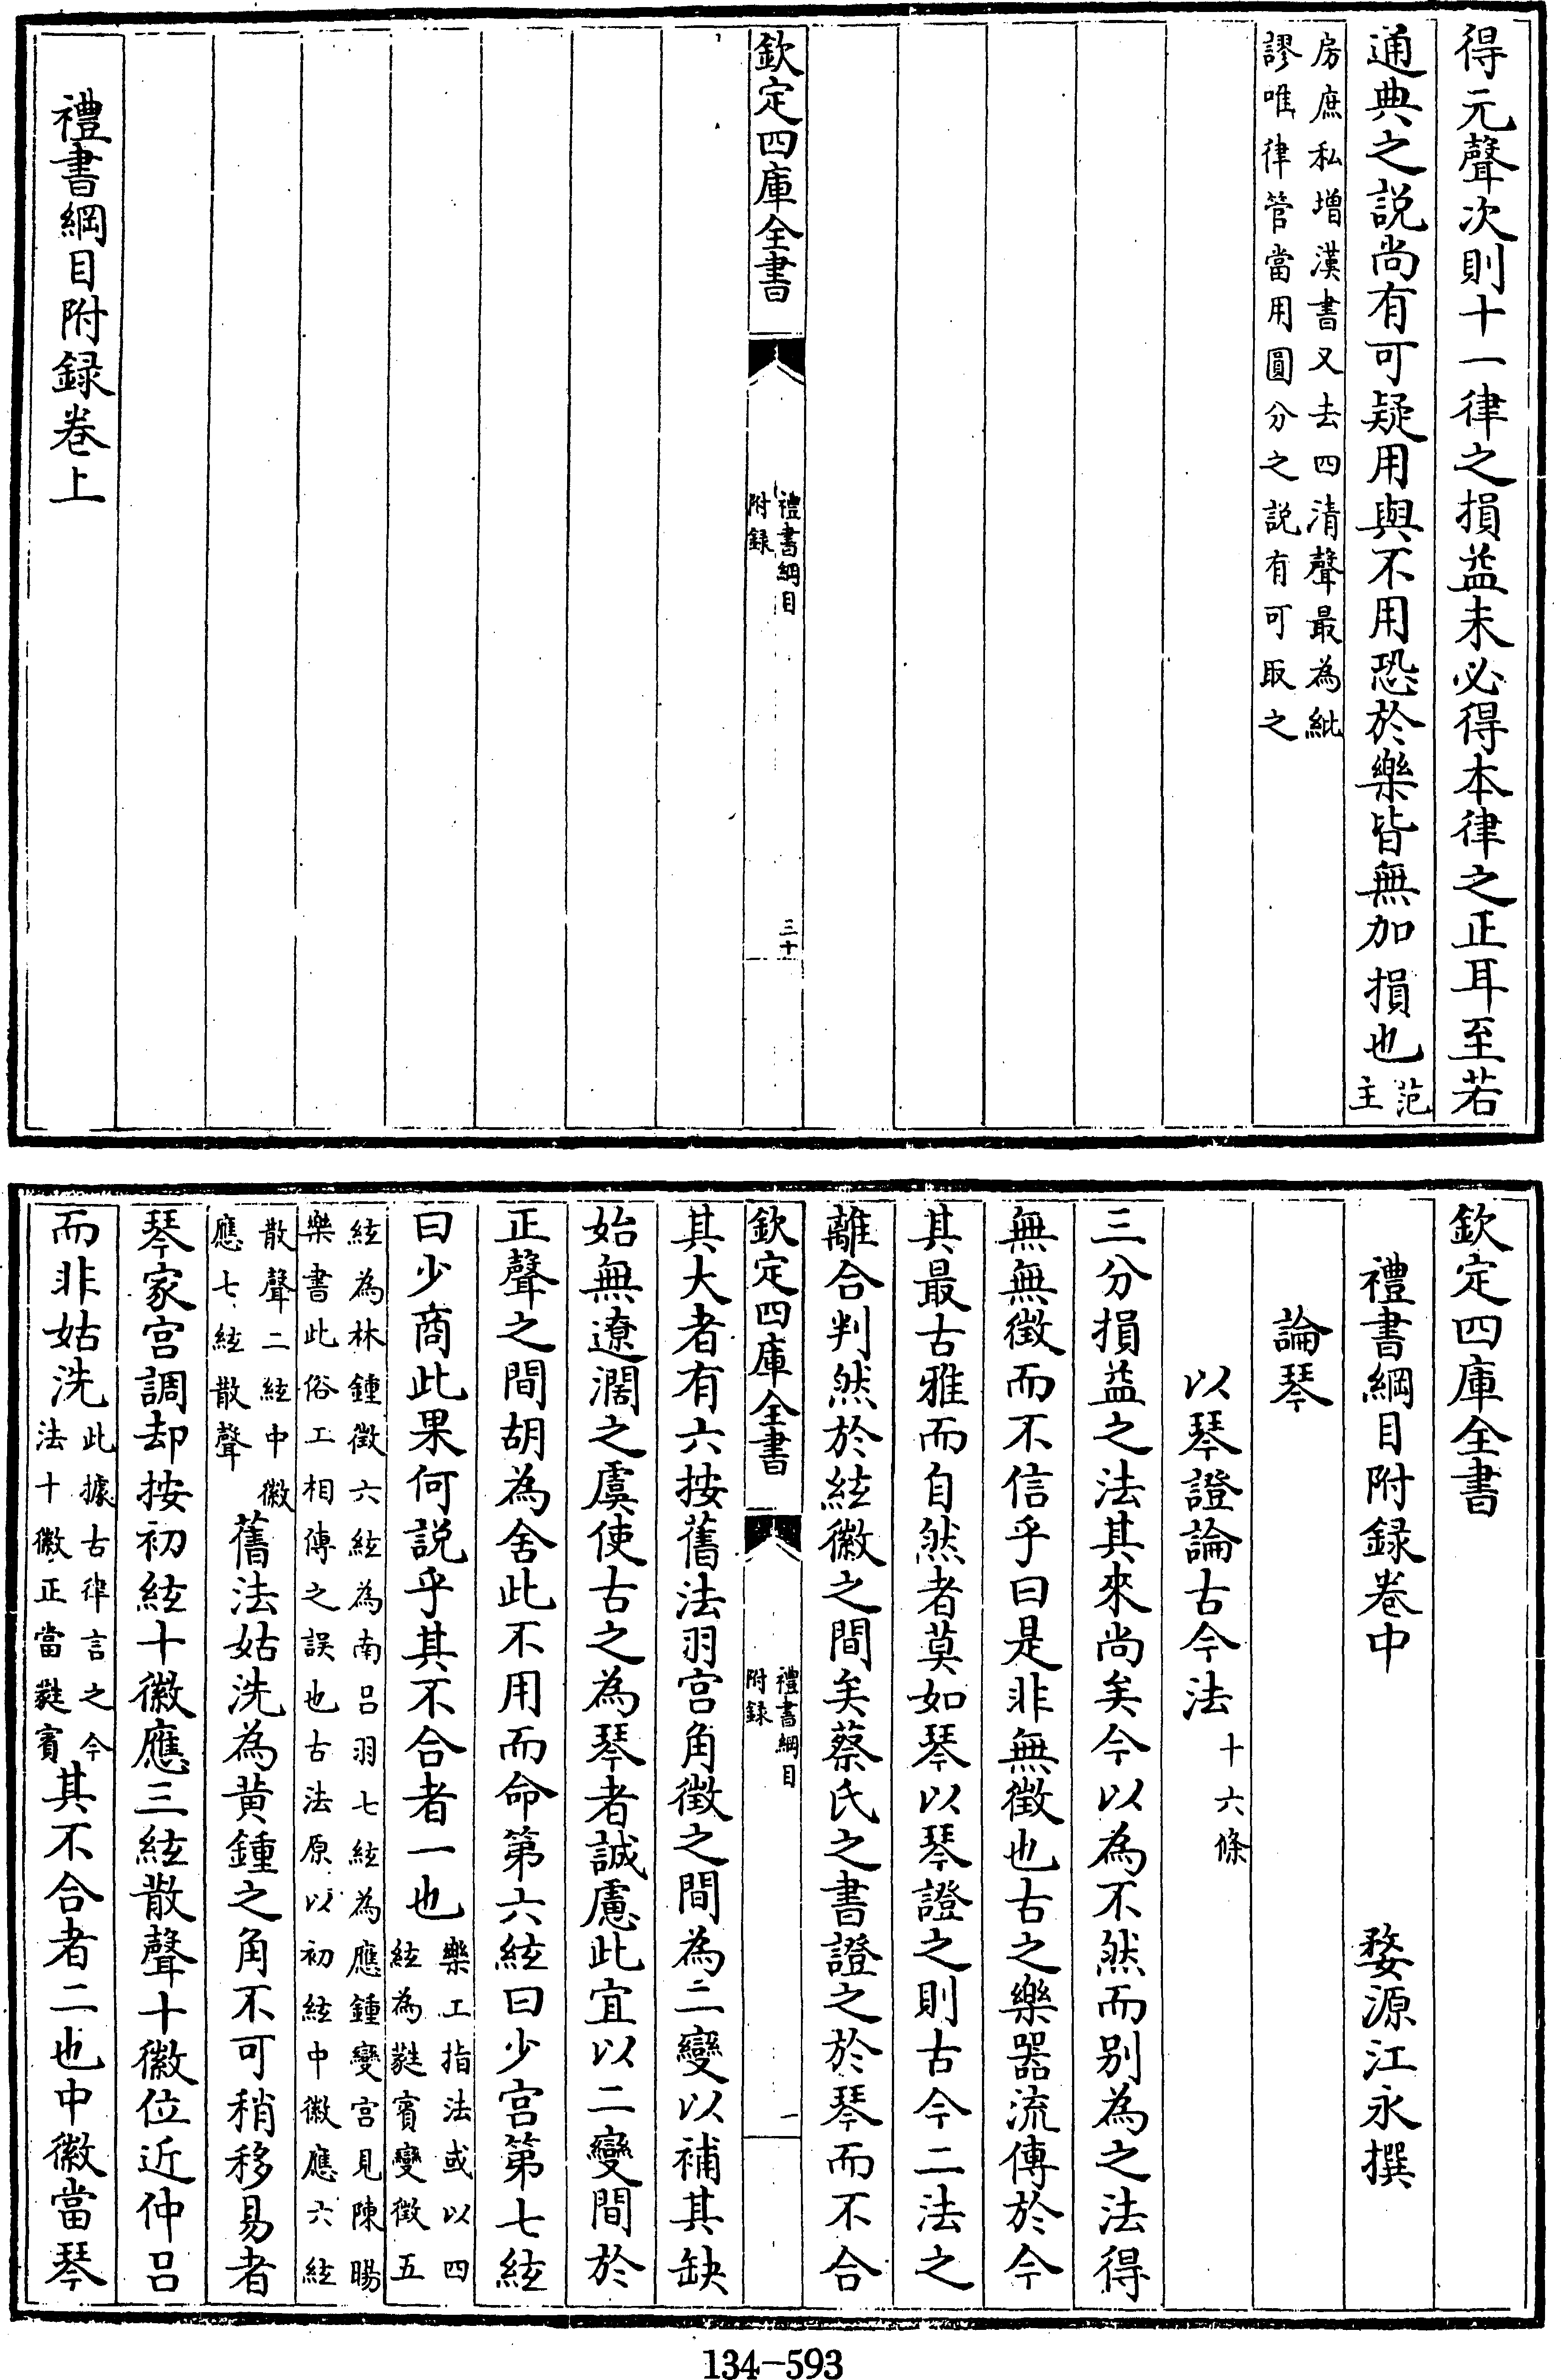 得元聲次則十一律之損益未必得本律之正耳至若
通典之説尚有可疑用與不用恐於樂皆無加損也范主
房庶私增漢書又去四清聲最為紕
謬唯律管當用圓分之説有可取之
欽定四庫全書
禮書綱目
附録
三十
禮書綱目附録卷上
欽定四庫全書
禮書綱目附録卷中
婺源江永撰
論琴
以琴證論古今法十六條
三分損益之法其來尚矣今以為不然而別為之法得
無無徵而不信乎曰是非無徵也古之樂器流傳於今
其最古雅而自然者莫如琴以琴證之則古今二法之
離合判然於絃徽之間矣蔡氏之書證之於琴而不合
欽定四庫全書
禮書綱目
附録
一
其大者有六按舊法羽宫角徵之間為二變以補其缺
始無遼濶之虞使古之為琴者誠慮此宜以二變間於
正聲之間胡為舍此不用而命第六絃曰少宫第七絃
曰少商此果何説乎其不合者一也樂工指法或以四
絃為蕤賓變徵五
絃為林鍾徵六絃為南吕羽七絃為應鍾變宫見陳暘
樂書此俗工相傳之誤也古法原以初絃中徽應六絃
散聲二絃中徽
應七絃散聲
舊法姑洗為黄鍾之角不可稍移易者
琴家宫調却按初絃十徽應三絃散聲十徽位近仲吕
而非姑洗此據古律言之今
法十徽正當蕤賓
其不合者二也中徽當琴
134-593